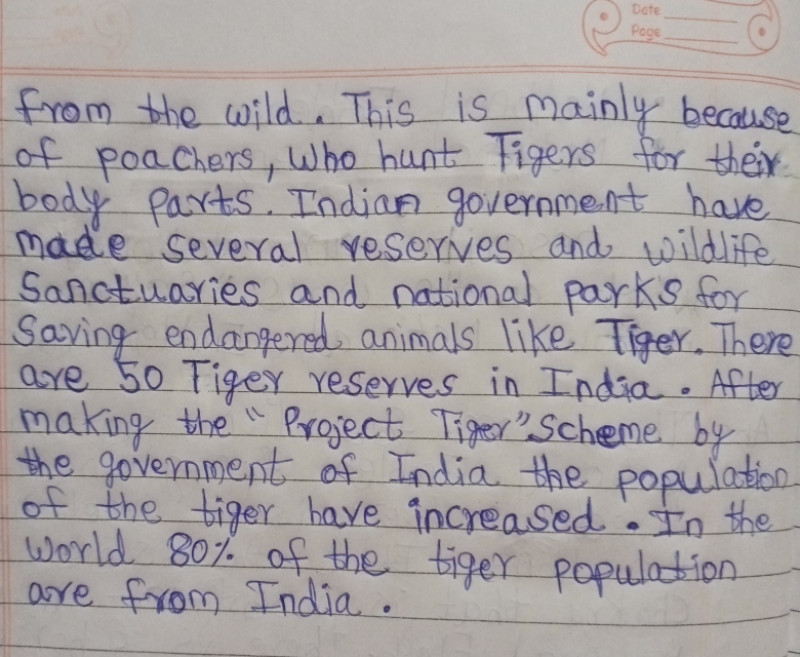 Date
Page
from the wild. This is mainly because
of poachers, Who hunt Tigers for their
body parts. Indian government have
made several reserves and wildlife
Sanctuaries and national parks for
Saving endangered animals like Tiger. There
are 50 Tiger reserves in India. After
making the "Project Tiger" Scheme by
the government of India the population
of the tiger have increased. In the
World 80% of the tiger population
are from India.